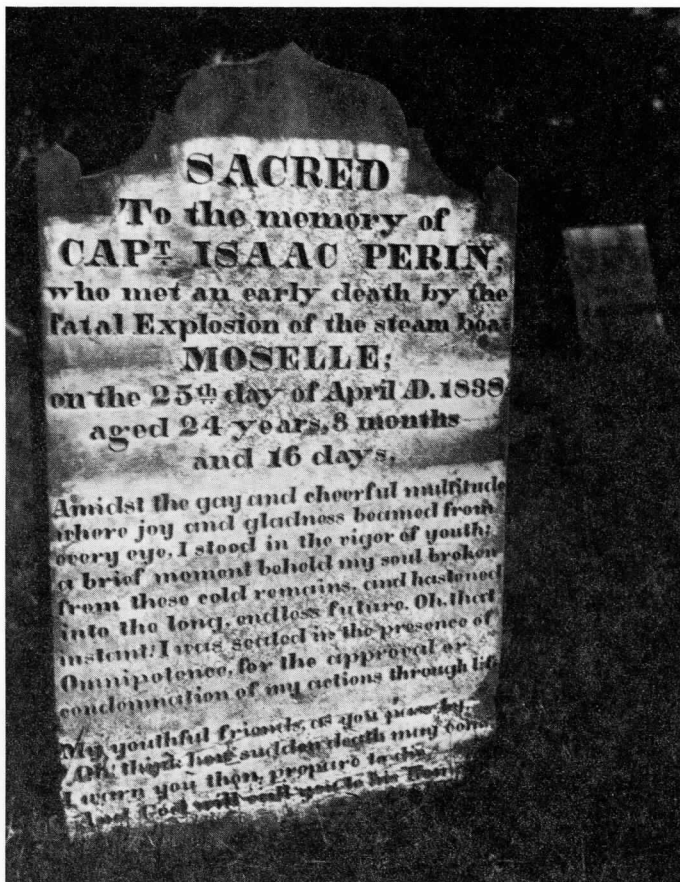 SACRED
To the memory of
CAPT. ISAAC PERIN,
who met an early death by the
fatal Explosion of the steam boat
MOSELLE;
on the 25th day of April AD. 1838
aged 24 years, 8 months
and 16 days.
Amidst the gay and cheerful multitude
where joy and gladness beamed from
every eye, I stood in the vigor of youth;
a brief moment beheld my soul broken
from these cold remains, and hastened
into the long, endless future. Oh, that
instant! I was seated in the presence of
Omnipotence, for the approval or
condemnation of my actions through life
My youthful friends, as you pass by,
Oh! think how sudden death may come
I warn you then, prepare to die
And God will call you to his